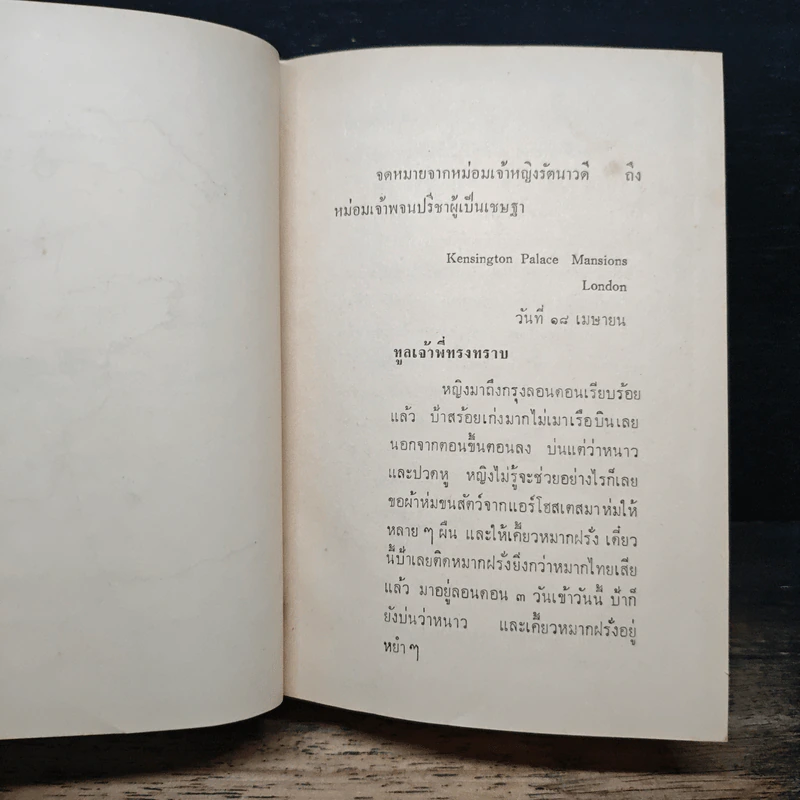 จดหมายจากหม่อมเจ้าหญิงรัตนาวดี ถึง
หม่อมเจ้าพจนปรีชาผู้เป็นเชษฐา
Kensington Palace Mansions
London
วันที่ ๑๘ เมษายน
ทูลเจ้าพี่ทรงทราบ
หญิงมาถึงกรุงลอนดอนเรียบร้อย
แล้ว ป้าสร้อยเก่งมากไม่เมาเรือบินเลย
นอกจากตอนขึ้นตอนลง บ่นแต่ว่าหนาว
และปวดหู หญิงไม่รู้จะช่วยอย่างไรก็เลย
ขอผ้าห่มขนสัตว์จากแอร์โฮสเตสมาห่มให้
หลาย ๆ ผืน และให้เคี้ยวหมากฝรั่ง เดี๋ยว
นี้ป้าเลยติดหมากฝรั่งยิ่งกว่าหมากไทยเสีย
แล้ว มาอยู่ลอนดอน ๓ วันเข้าวันนี้ ป้าก็
ยังบ่นว่าหนาว และเคี้ยวหมากฝรั่งอยู่
หยำ ๆ